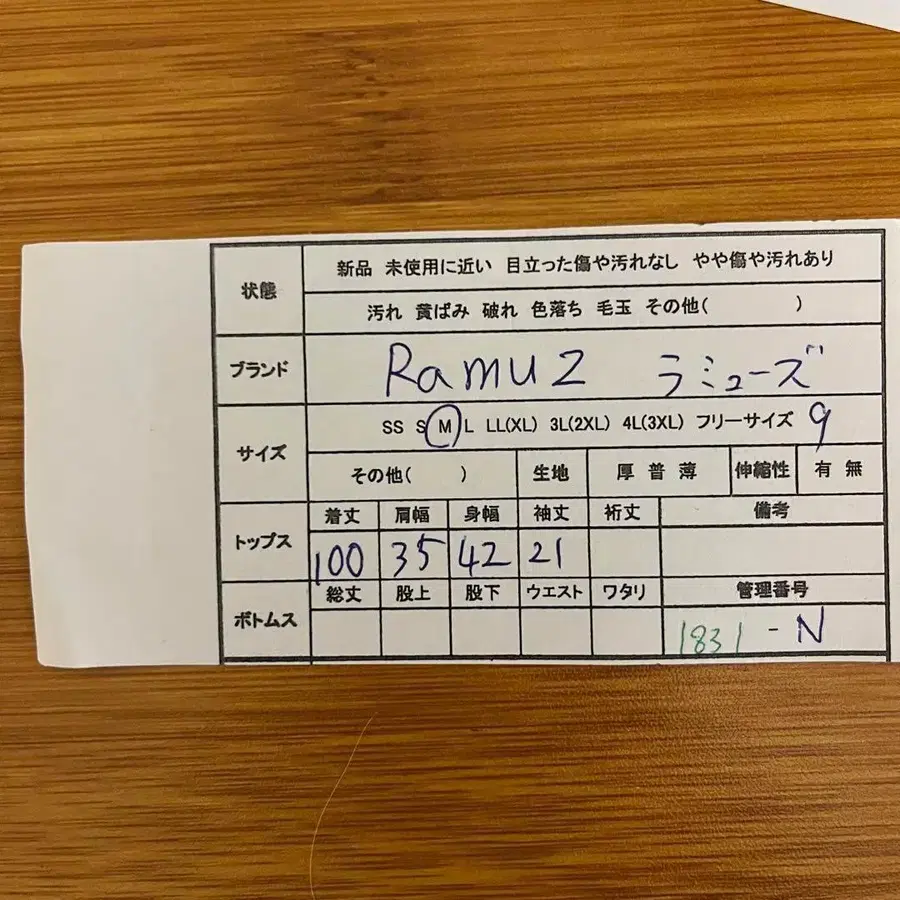 状態 新品 未使用に近い 目立った傷や汚れなし やや傷や汚れあり
汚れ 黄ばみ 破れ 色落ち 毛玉 その他( )
ブランド Ramuz ラミューズ
サイズ SS S M L LL(XL) 3L(2XL) 4L(3XL) フリーサイズ 9
その他( ) 生地 厚 普 薄 伸縮性 有 無
トップス 着丈 肩幅 身幅 袖丈 裄丈 備考
100 35 42 21
ボトムス 総丈 股上 股下 ウエスト ワタリ 管理番号
1831 - N